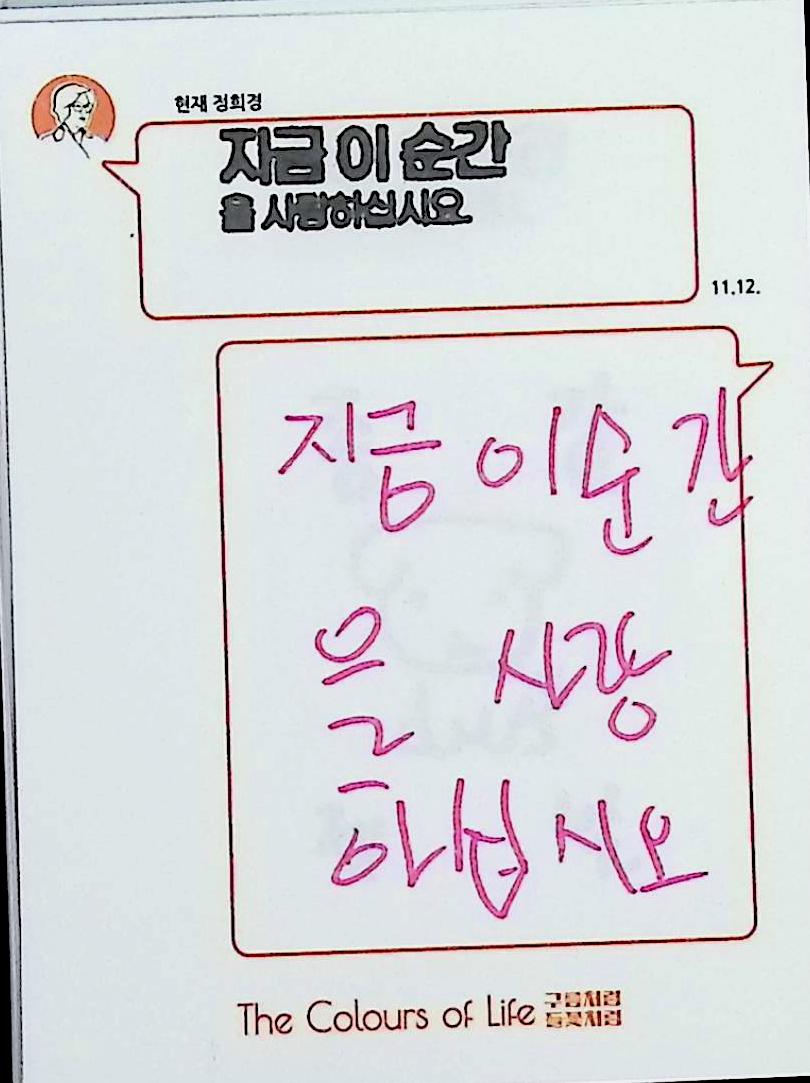 현재 정희경
지금 이 순간
을 사랑하십시요
11.12.
지금 이 순간
을 사랑
하십시요
The Colours of Life 구름처럼
들꽃처럼